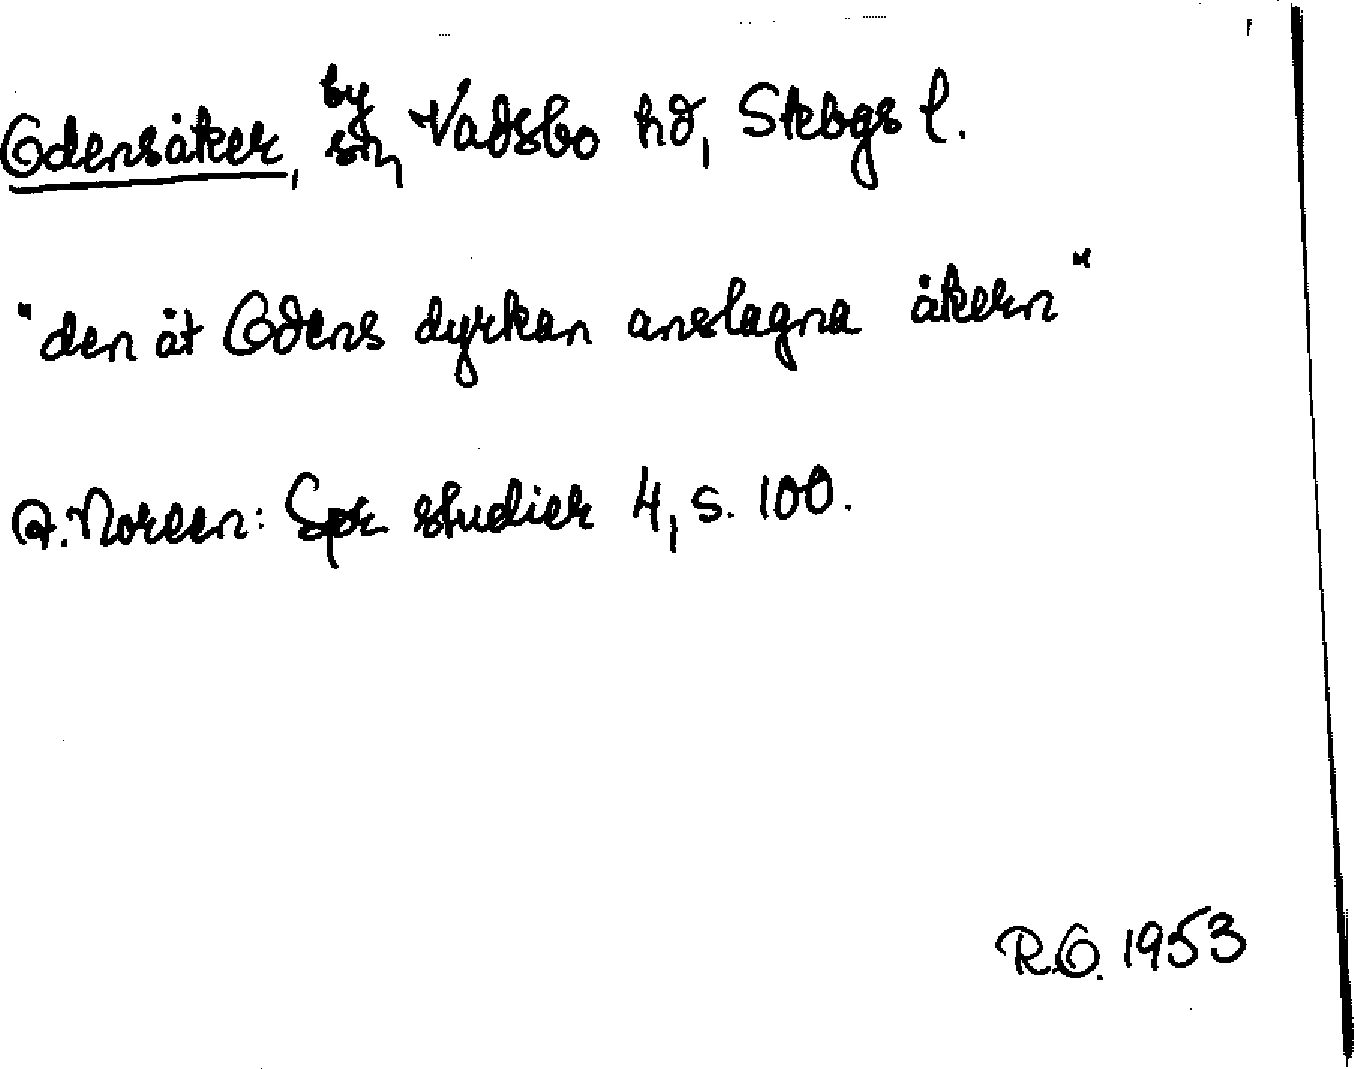 Odensåker, by sn, Vadsbo hd, Skbgs l.
"den åt Odens dyrkan anslagna åkern"
A. Noreen: Spr studier 4, s. 100.
R.O. 1953